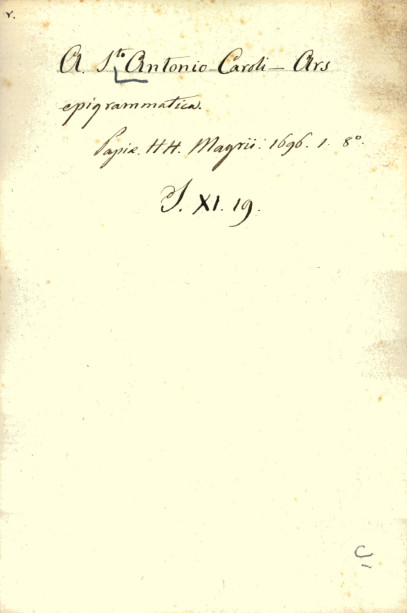 v.
A S.to Antonio Caroli – Ars
epigrammatica.
Papiæ. HH. Magrii. 1696. 1. 8°.
S. XI. 19.
C